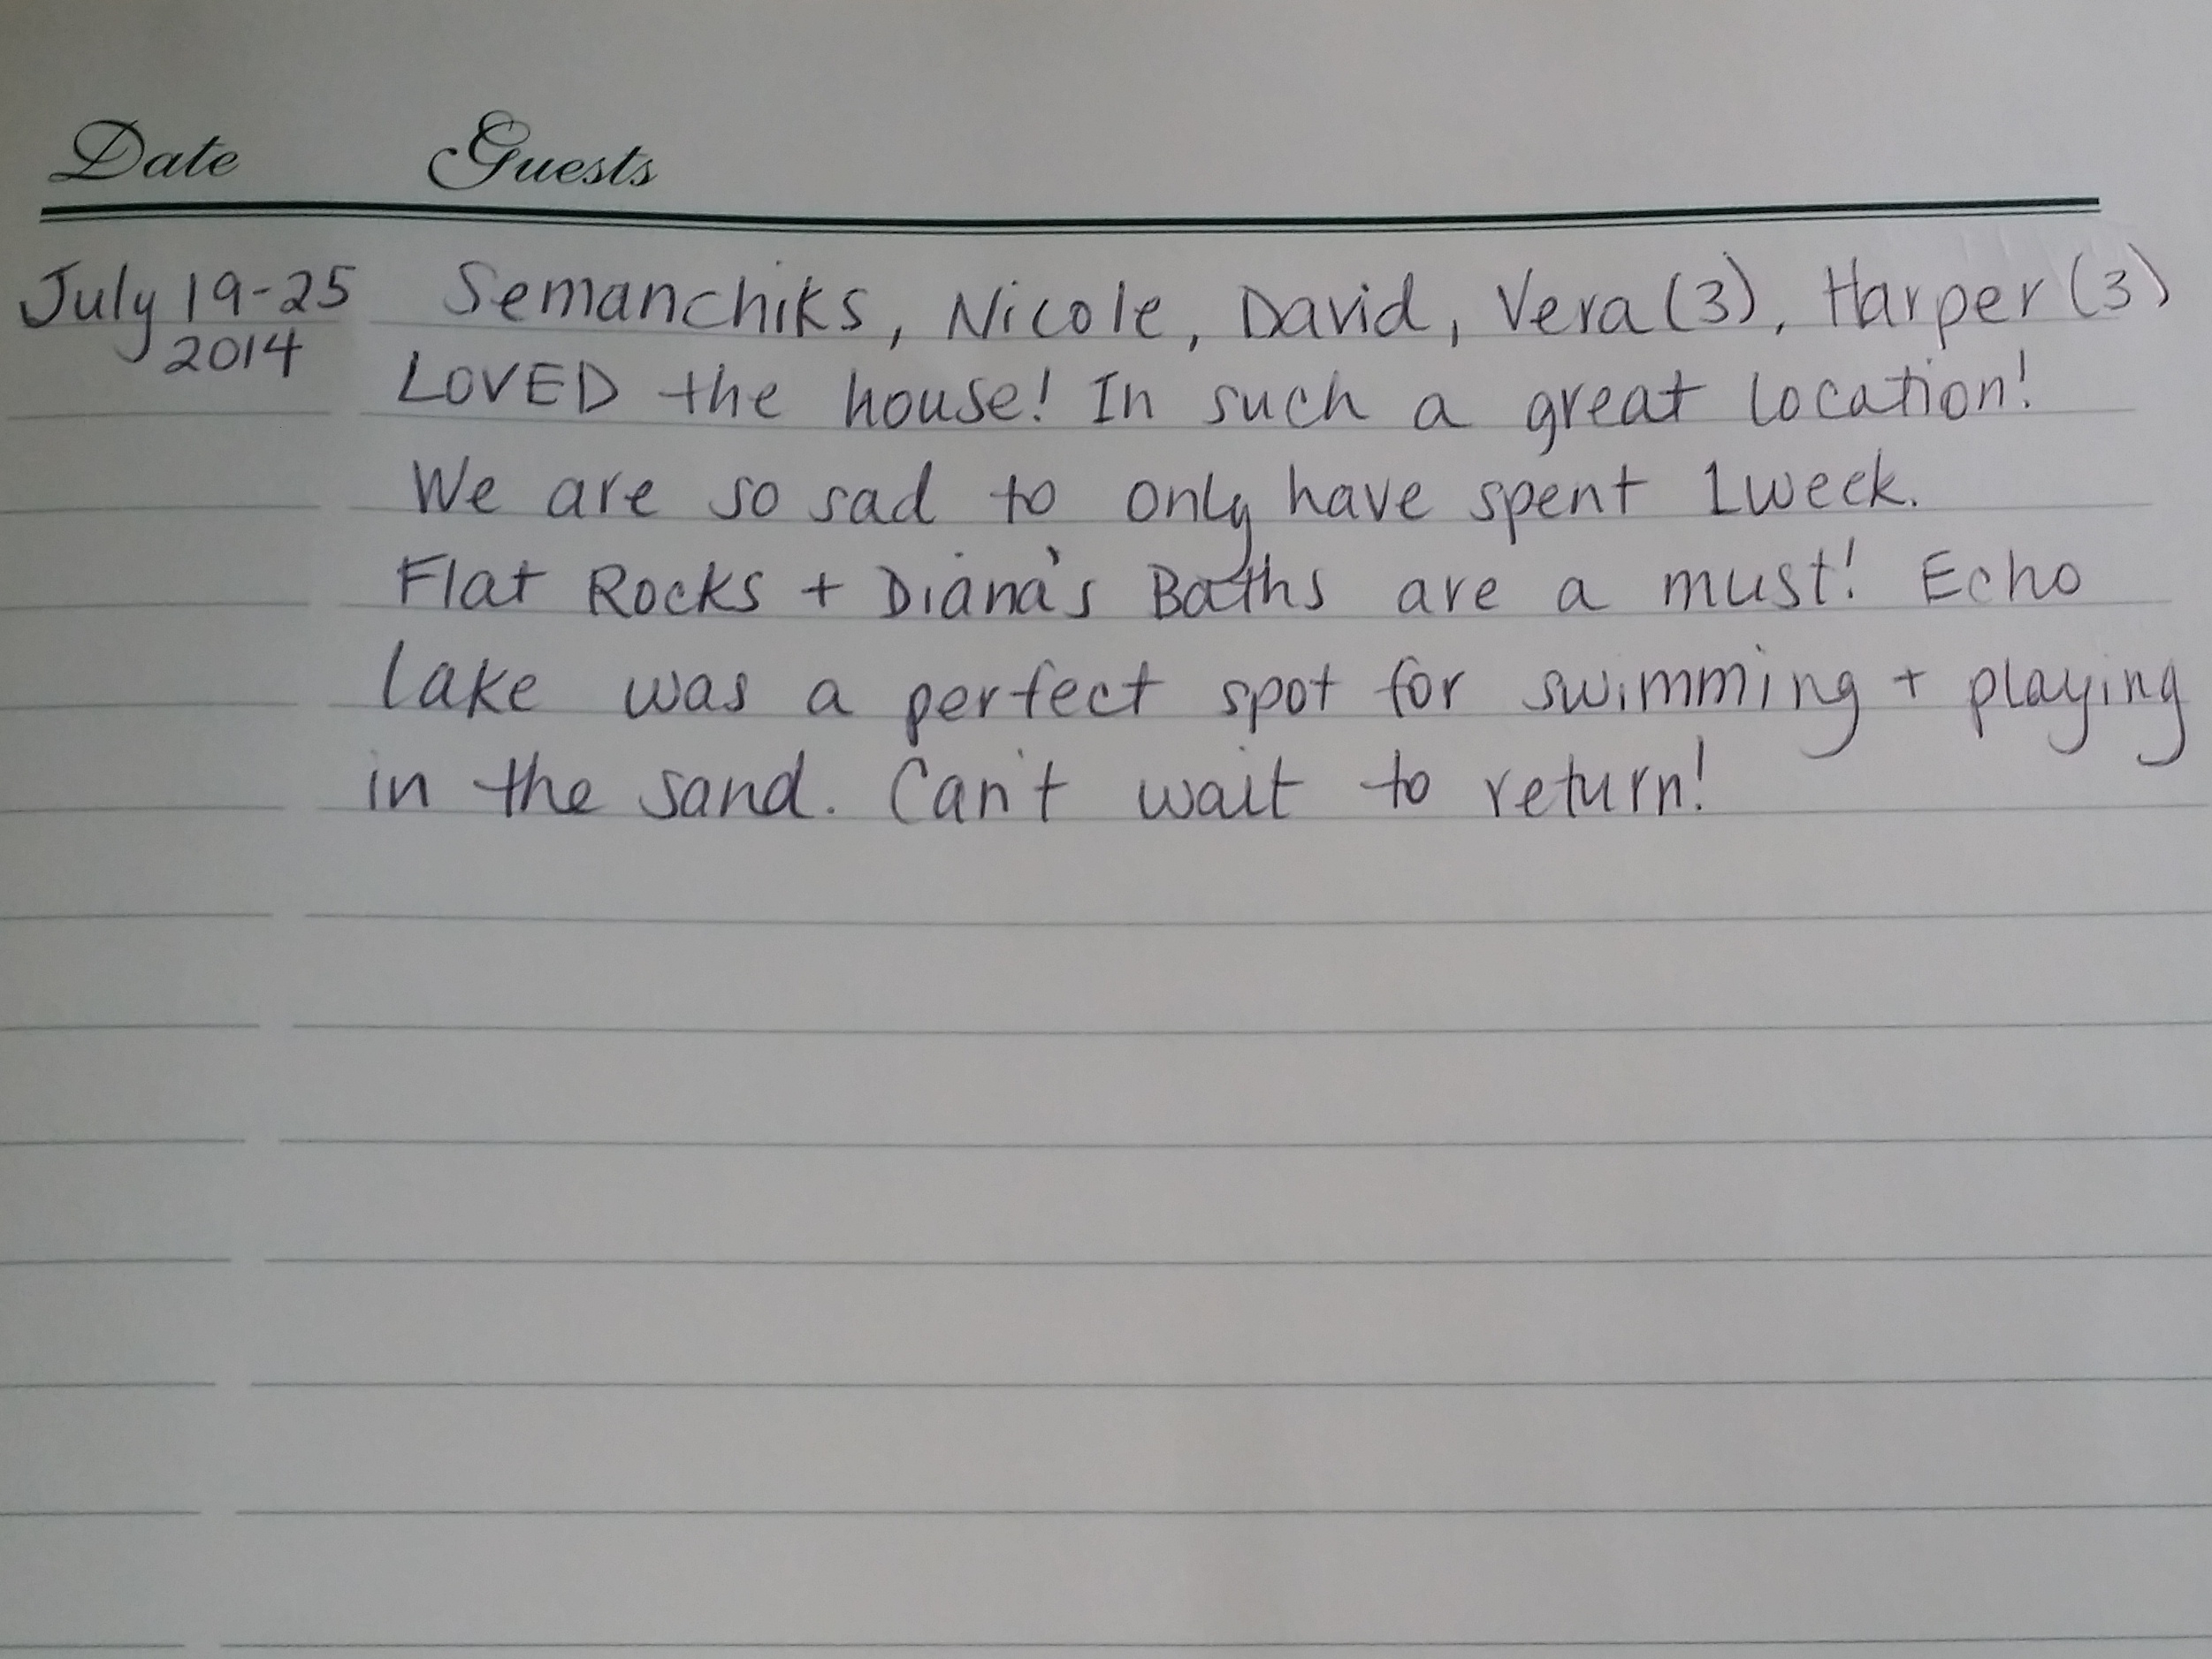 Date Guests
July 19-25 Semanchiks, Nicole, David, Vera (3), Harper (3)
2014 LOVED the house! In such a great location!
We are so sad to only have spent 1 week.
Flat Rocks + Diana's Baths are a must! Echo
Lake was a perfect spot for swimming + playing
in the sand. Can't wait to return!